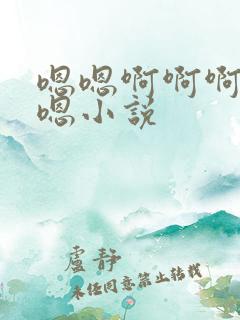 嗯嗯啊啊啊
嗯小说
卢静
未经同意禁止转载